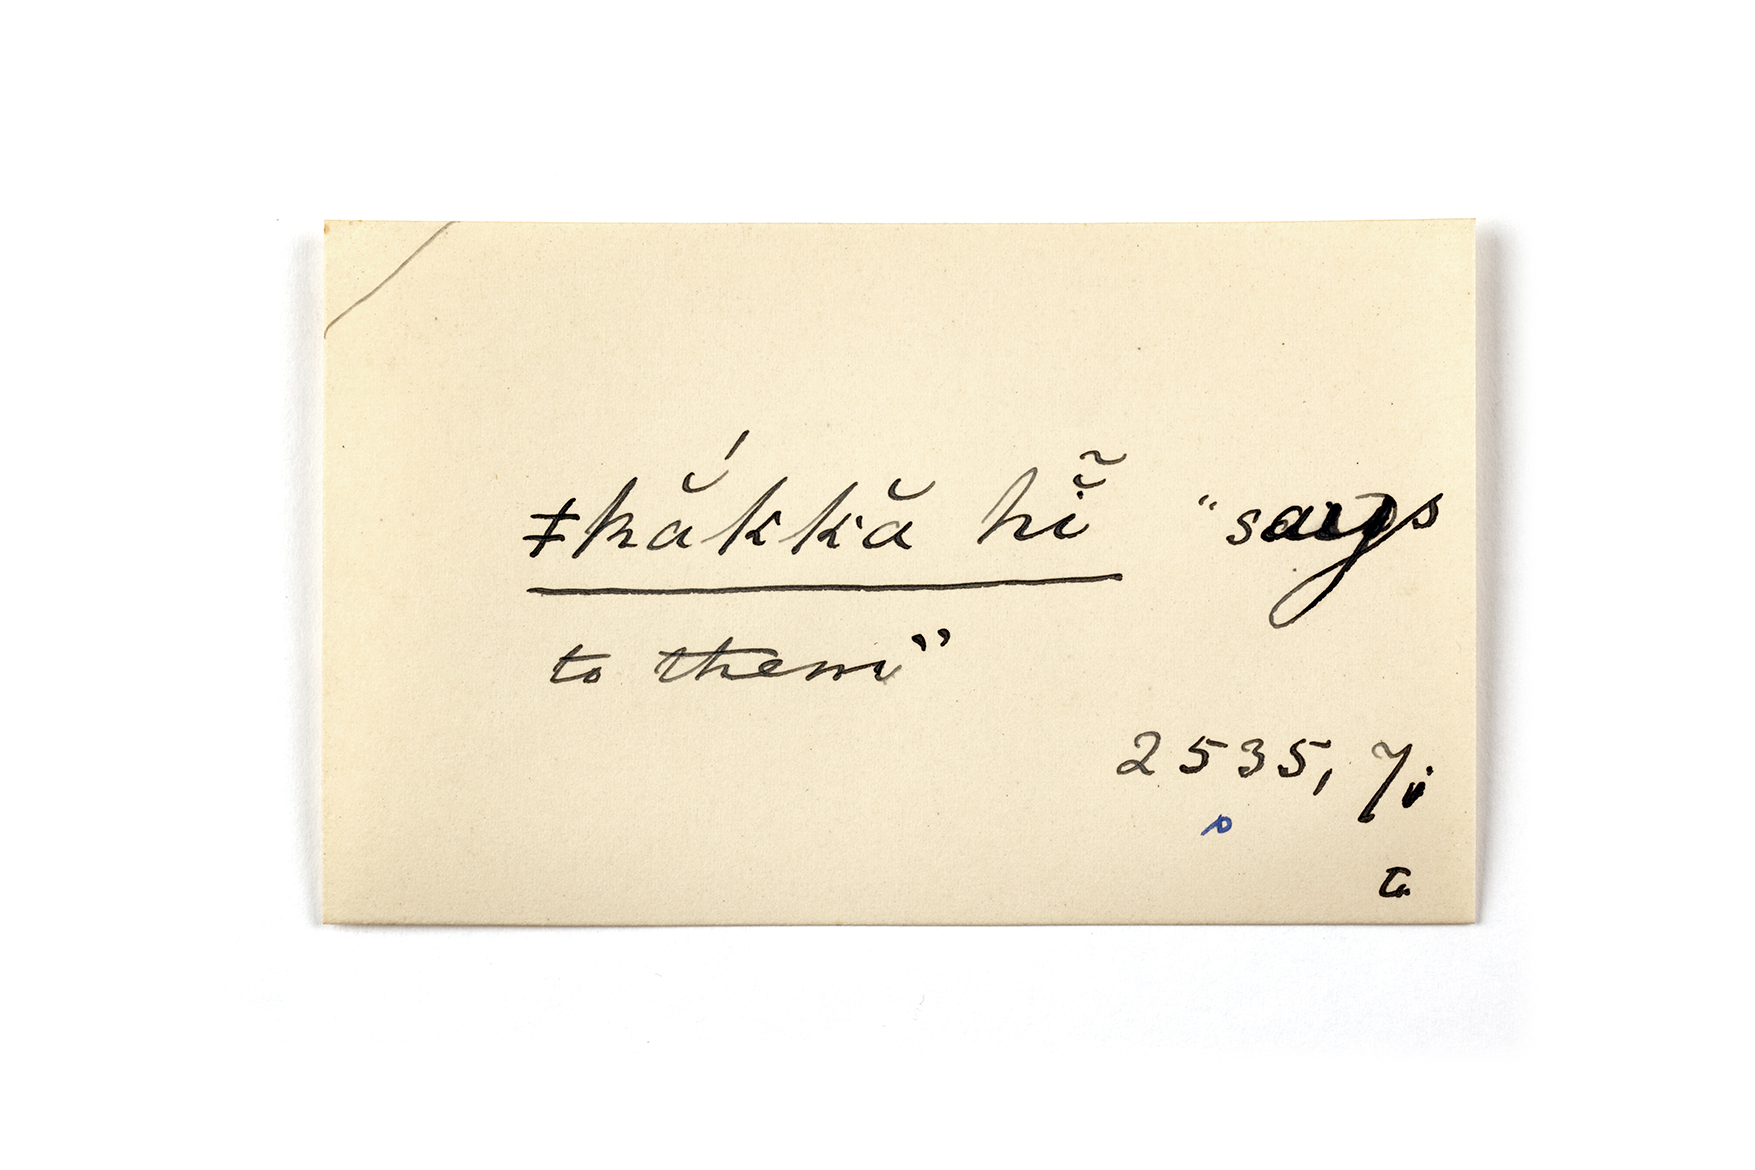 ǂkắkkă hĭ̃ "says
to them"
2535,